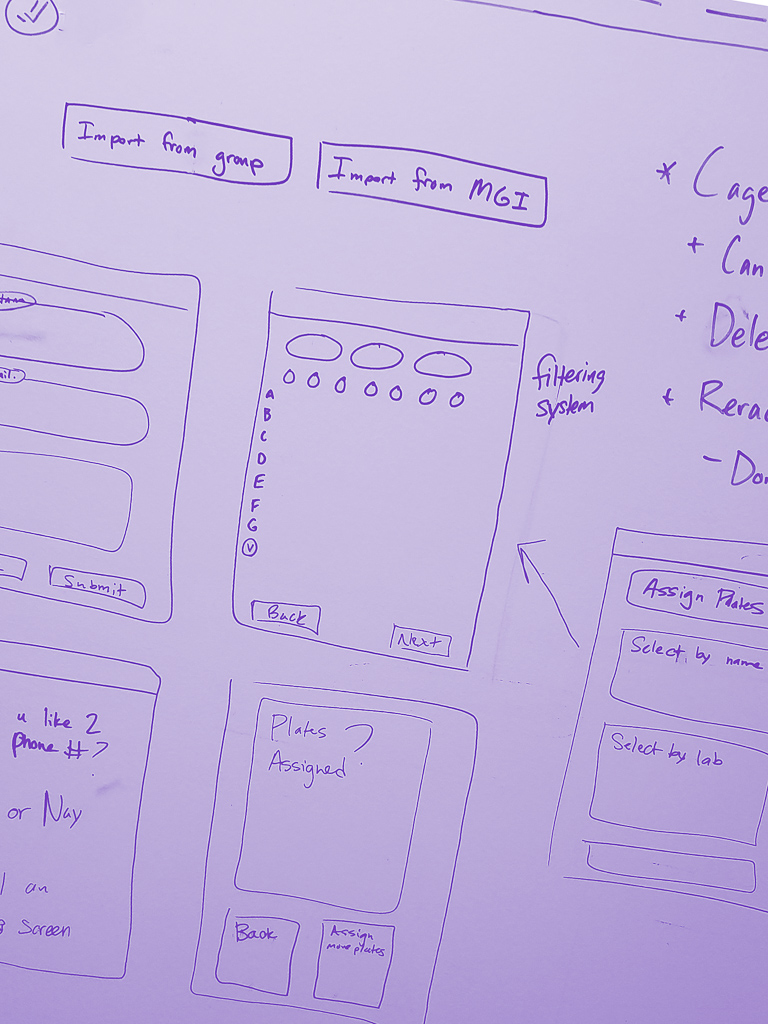 Import from group
Import from MGI
* Cage
+ Can
+ Dele
+ Rerac
- Don
filtering
system
A
B
C
D
E
F
G
V
Submit
Back
Next
Assign Plates
Select by name
Select by lab
u like 2
phone # ?
or Nay
an
screen
Plates ?
Assigned
Back
Assign
more plates